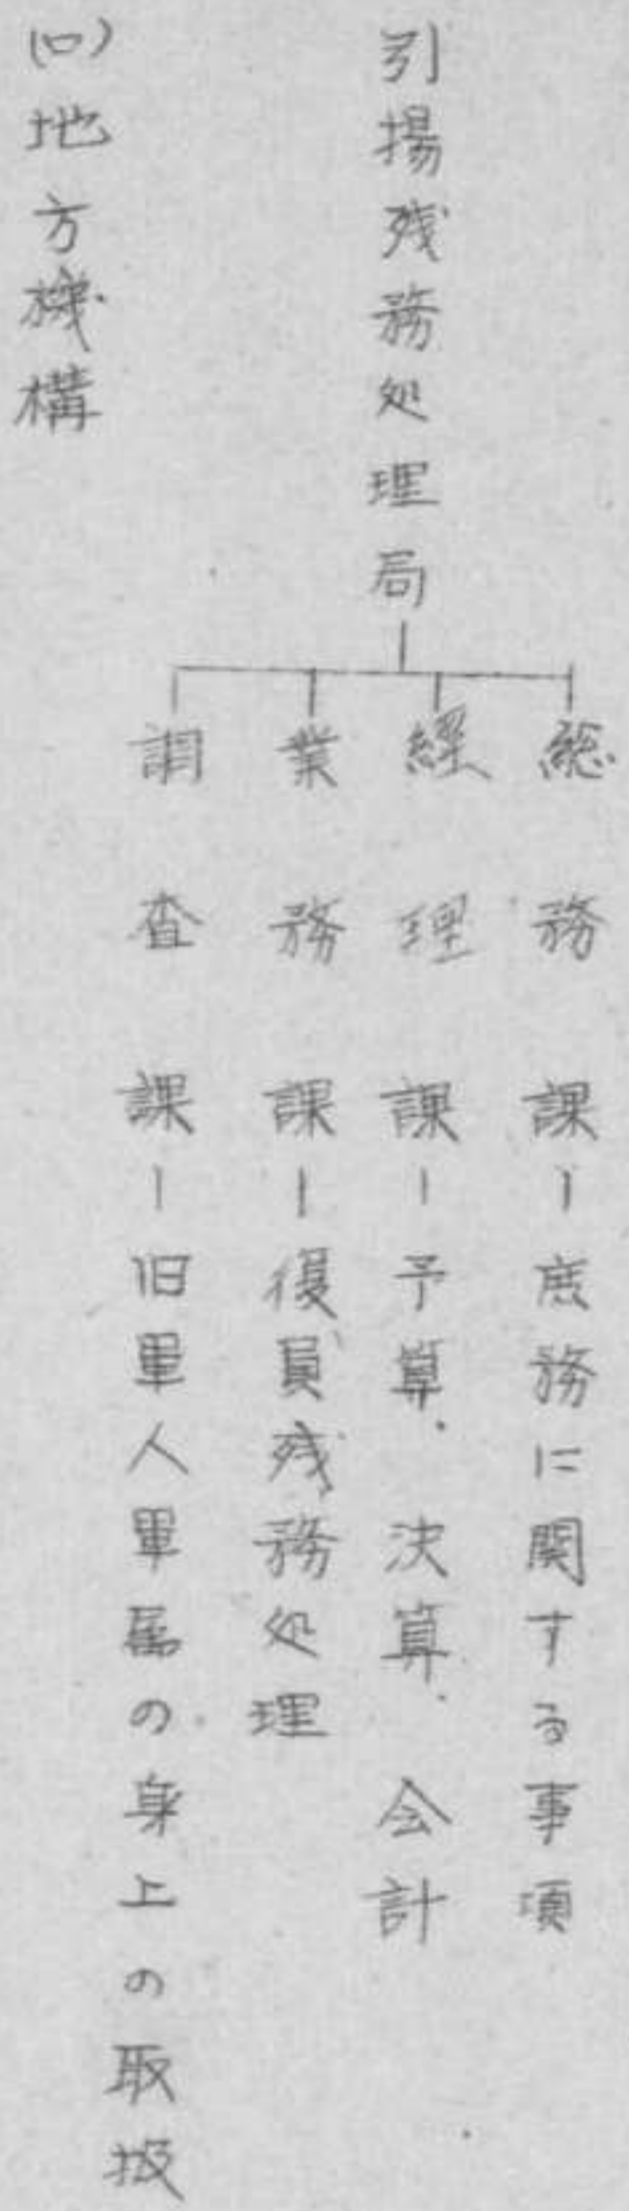 引揚残務処理局
総務課ー庶務に関する事項
経理課ー予算.決算.会計
業務課ー復員残務処理
調査課ー旧軍人軍属の身上の取扱
(ロ)地方機構